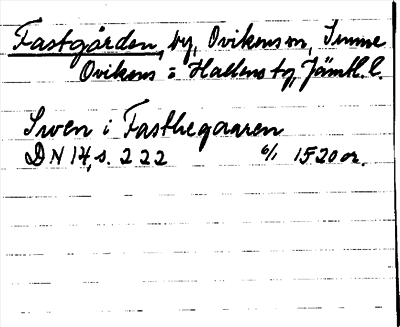 Fastgården, by, Ovikens sn,
Ovikens o Hallens tg, Jämtl. l.
Swen i Fasthegaaren
DN 14, s. 222 6/1 1520 or.